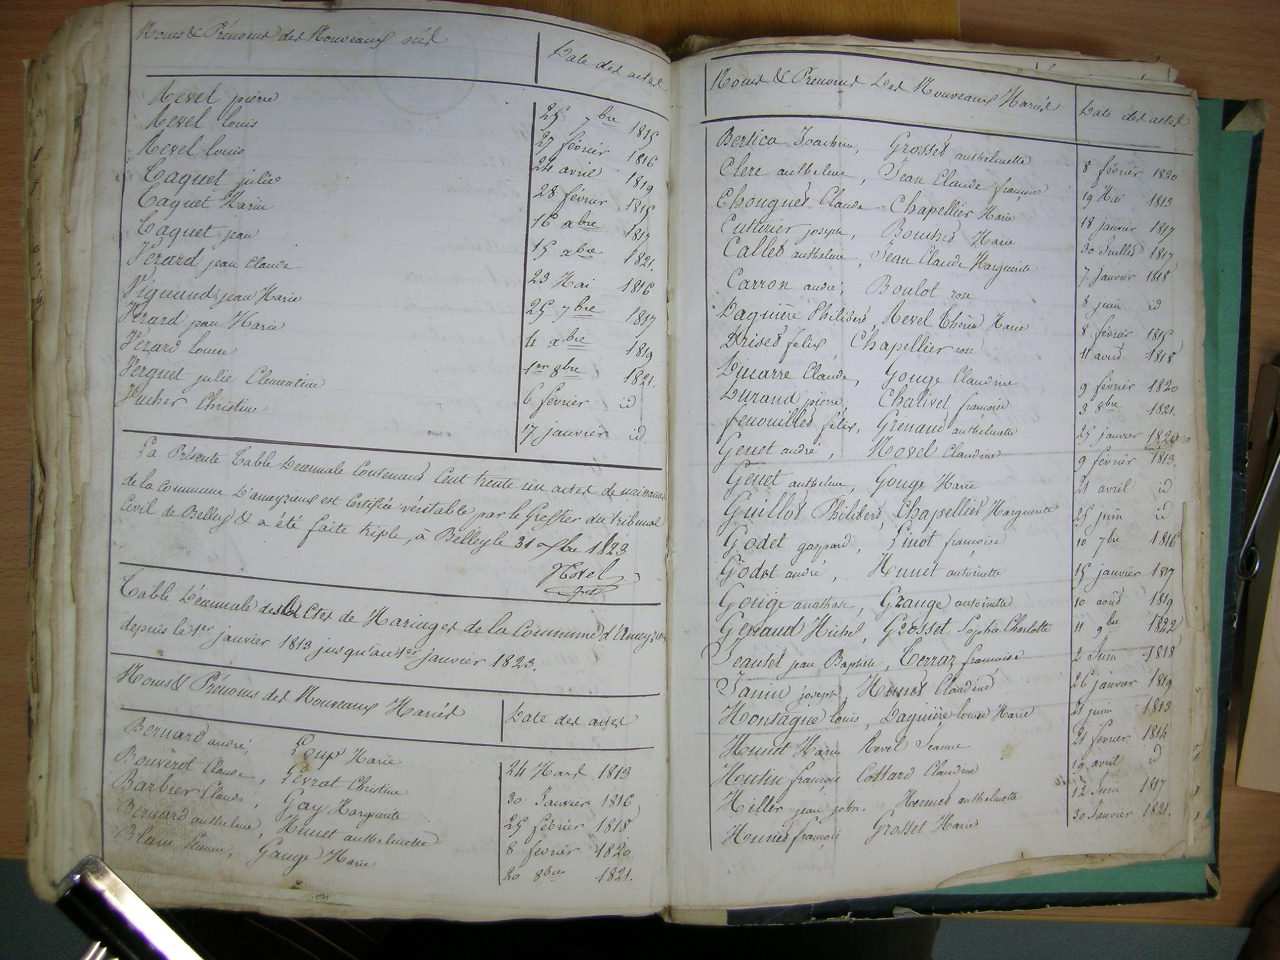 Noms & Prénoms des Nouveaux nés
Date des actes
Revel pierre 25 7bre 1815
Revel louis 27 février 1816
Revel louis 24 avril 1819
Taquet julie 28 février 1815
Taquet Marie 16 xbre 1817
Taquet jean 15 xbre 1821.
Vezard jean Claude 23 Mai 1816
Vignund jean Marie 25 7bre 1817
Vezard jean Marie 4 xbre 1819
Vezard louise 1er 8bre 1821.
Verguet julie Clementine 6 février id
Vucher Christine 7 janvier id
La Présente Table Décennale Contenant Cent trente un actes de naissances
de la Commune D'ameyzieux est Certifiée véritable par le Greffier du tribunal
Civil de Belley & a été faite triple, à Belley le 31 Xbre 1823
Table Décennale des Actes de Mariages de la Commune d'Ameyzieux
depuis le 1er janvier 1813 jusqu'au 1er janvier 1823.
Noms & Prénoms des Nouveaux Mariés
Date des actes
Bernard andré, Loup Marie 24 Mars 1813
Bouverot Claude, Livrat Christine 30 Janvier 1816
Barbier Claude, Gay Marguerite 25 février 1818
Bernard anthelme, Humet anthelmette 8 février 1820
Blanc Gouge Marie 20 8bre 1821.
Noms & Prénoms Des Nouveaux Mariés
Date des actes
Bertica Joachim, Grosset anthelmette 8 février 1820
Clerc anthelme, Jean Claude françoise 19 Mai 1813
Chouguet Claude Chapellier Marie 18 janvier 1817
Cuttivier joseph, Marie 30 Juillet 1817
Callet anthelme, Jean Claude Marguerite 7 Janvier 1818
Carron andré, Boulot rose 8 juin id
Daguière Philibert Revel Marie 8 février 1815
félix Chapellier rose 11 avril 1818
Claude, Gouge Claudine 9 février 1820
Durand pierre, Chalivet françoise 3 8bre 1821.
fenouillet félix, Grenaud anthelmette 25 janvier 1820
Genet andré, Revel Claudine 9 février 1813.
Genet anthelme, Gouge Marie 21 avril id
Guillot Philibert, Chapellier Marguerite 25 juin id
Godet gaspard, Pinot françoise 10 7bre 1816
Godet andré, Humet antoinette 15 janvier 1817
Gouge anathase, Grange antoinette 10 aout 1819
Genaud Michel, Grosset Sophie Charlotte 11 9bre 1822
Jeantet jean Baptiste, Terraz françoise 2 Juin 1818
Janin joseph, Humet Claudine 26 janvier 1819
Montagne louis, Daguière louise Marie 21 juin 1813
Humet Marie Revel Jeanne 21 février 1814
Mutin françois Cottard Claudine 19 avril id
Millet jean Humet anthelmette 12 Juin 1817
Humet françois Grosset Marie 30 Janvier 1821.